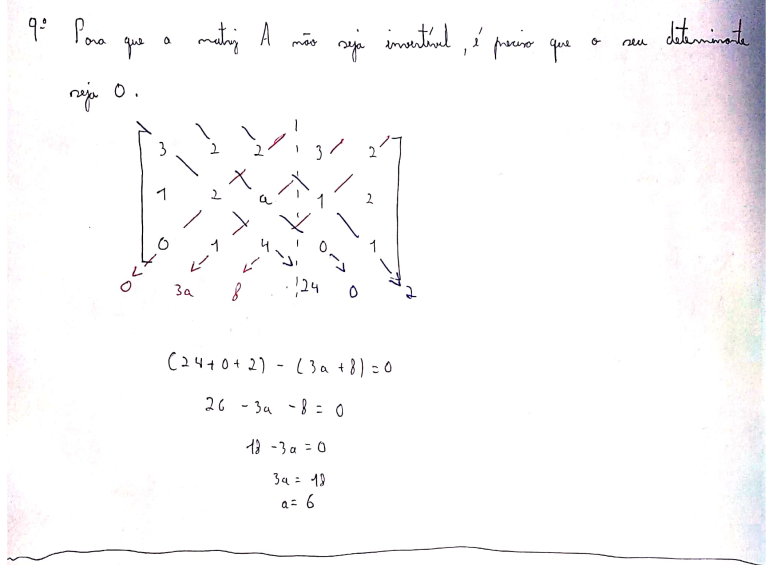 9º Para que a matriz A não seja invertível, é preciso que o seu determinante
seja 0.
3 2 2 3 2
1 2 a 1 2
0 1 4 0 1
0 3a 8 24 0 2
(24+0+2) - (3a+8)=0
26 - 3a - 8 = 0
18 - 3a = 0
3a = 18
a = 6